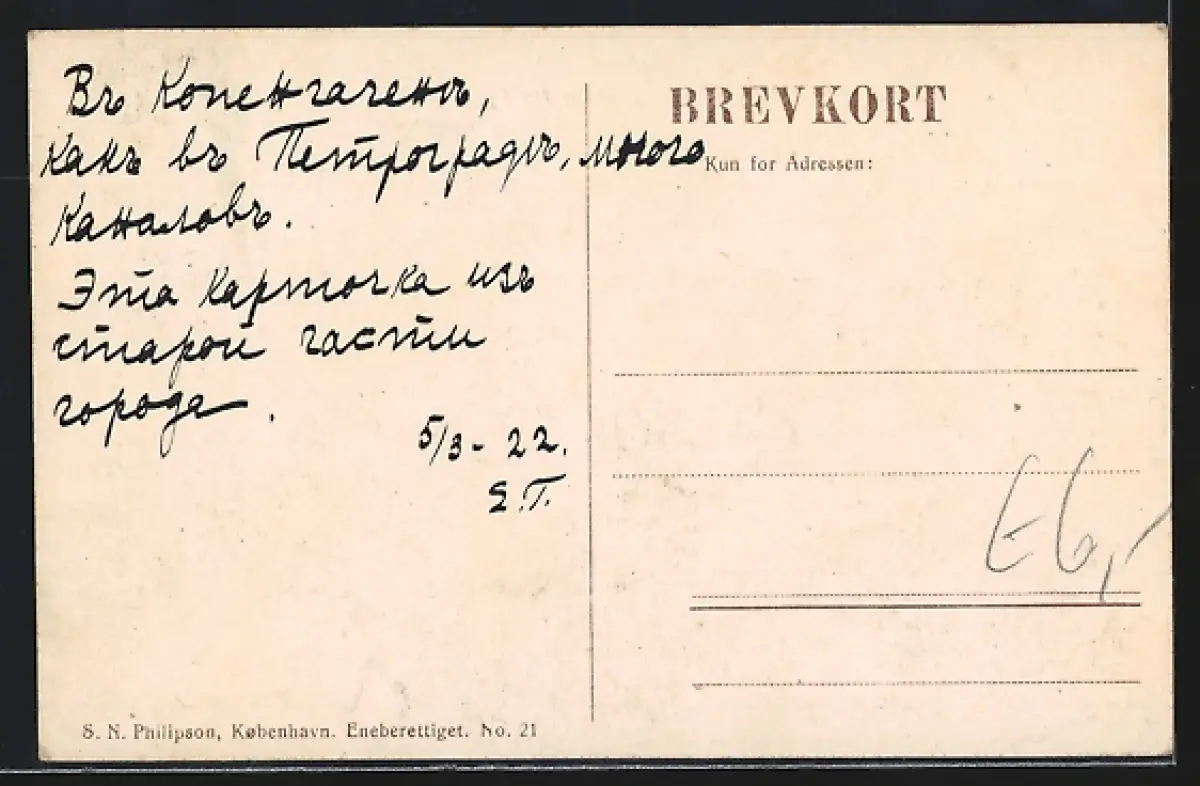 Въ Копенгагенѣ,
какъ въ Петроградѣ, много
каналовъ.
Эта карточка изъ
старой части
города.
5/3 - 22.
Э.Т.
BREVKORT
Kun for Adressen:
E6,-
S. N. Philipson, København. Eneberettiget. No. 21